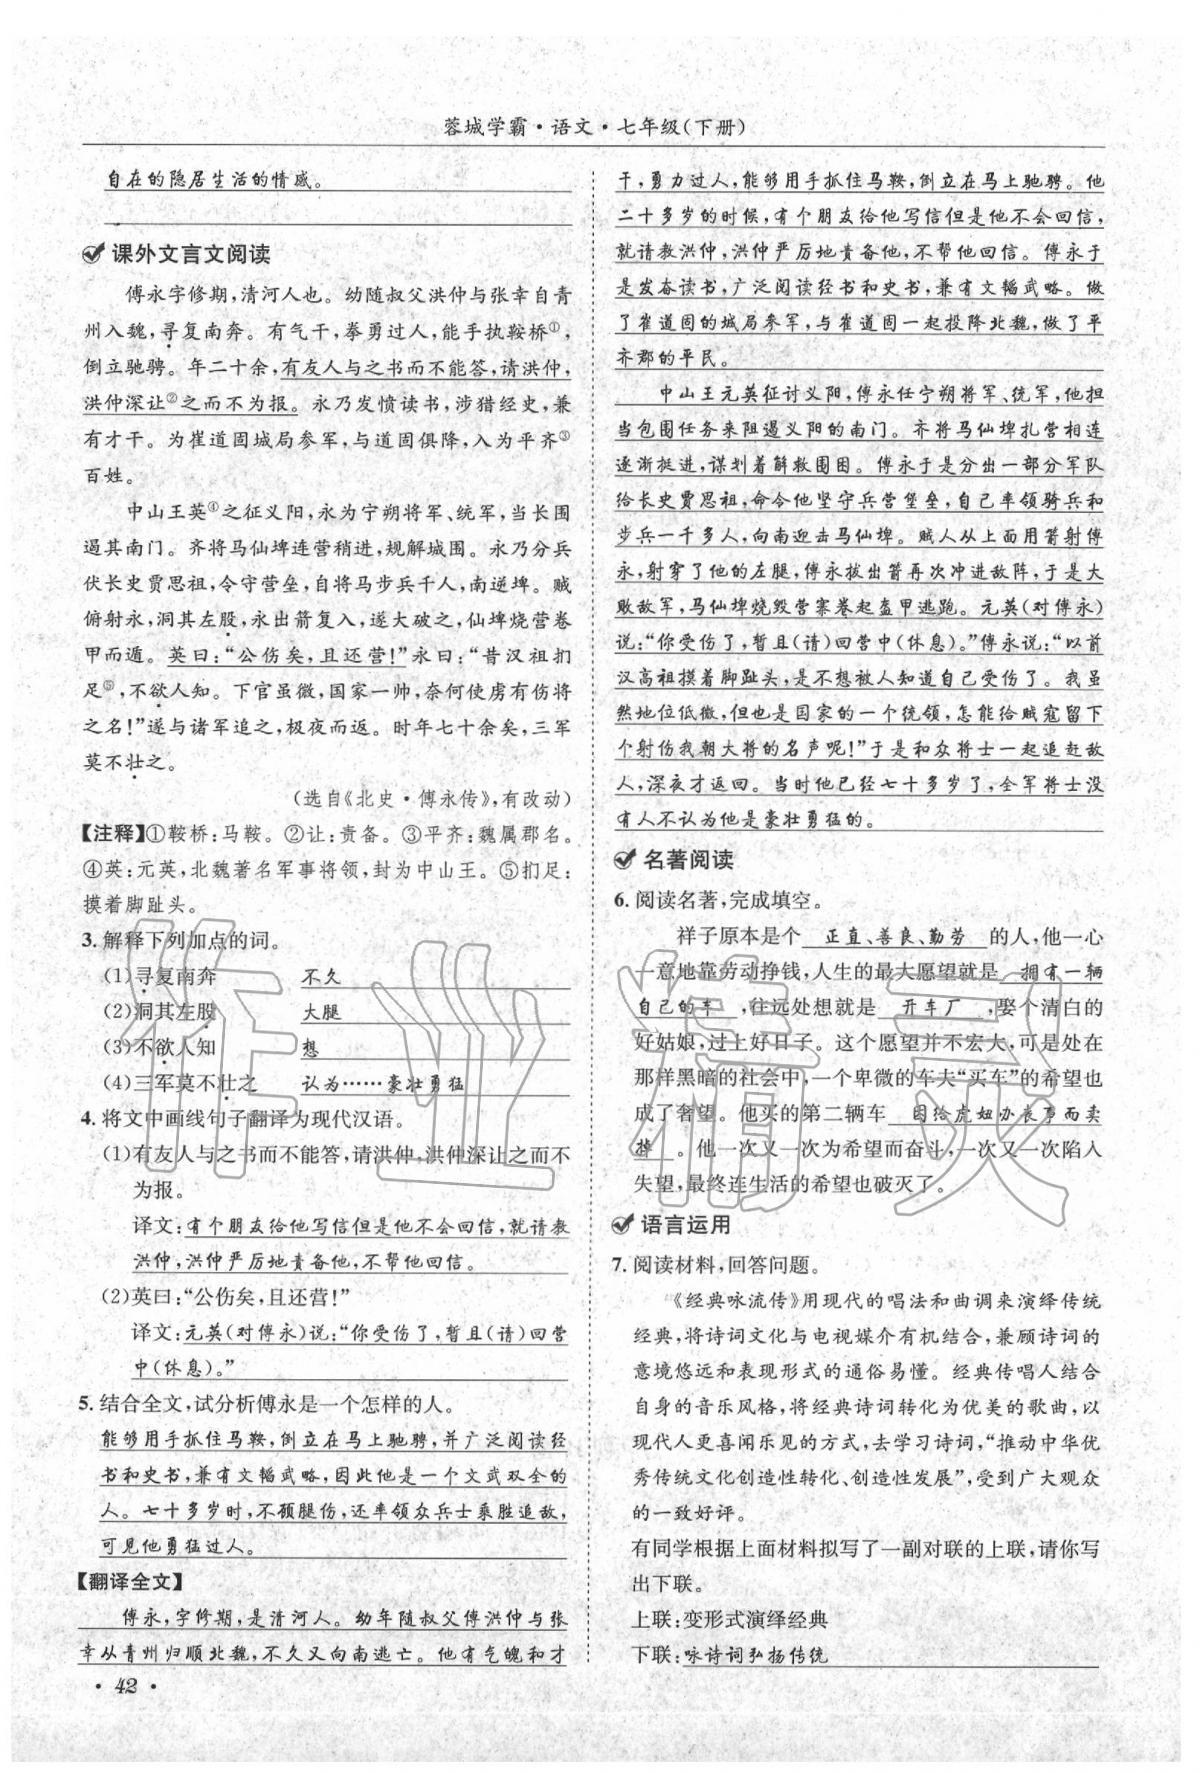 蓉城学霸·语文·七年级(下册)
自在的隐居生活的情感。
课外文言文阅读
傅永字修期,清河人也。幼随叔父洪仲与张幸自青
州入魏,寻复南奔。有气干,拳勇过人,能手执鞍桥①,
倒立驰骋。年二十余,有友人与之书而不能答,请洪仲,
洪仲深让②之而不为报。永乃发愤读书,涉猎经史,兼
有才干。为崔道固城局参军,与道固俱降,入为平齐③
百姓。
中山王英④之征义阳,永为宁朔将军、统军,当长围
遏其南门。齐将马仙埤连营稍进,规解城围。永乃分兵
伏长史贾思祖,令守营垒,自将马步兵千人,南逆埤。贼
俯射永,洞其左股,永出箭复入,遂大破之,仙埤烧营卷
甲而遁。英曰:“公伤矣,且还营!”永曰:“昔汉祖扪
足⑤,不欲人知。下官虽微,国家一帅,奈何使虏有伤将
之名!”遂与诸军追之,极夜而返。时年七十余矣,三军
莫不壮之。
(选自《北史·傅永传》,有改动)
【注释】①鞍桥:马鞍。②让:责备。③平齐:魏属郡名。
④英:元英,北魏著名军事将领,封为中山王。⑤扪足:
摸着脚趾头。
3. 解释下列加点的词。
(1)寻复南奔 不久
(2)洞其左股 大腿
(3)不欲人知 想
(4)三军莫不壮之 认为……豪壮勇猛
4. 将文中画线句子翻译为现代汉语。
(1)有友人与之书而不能答,请洪仲,洪仲深让之而不
为报。
译文:有个朋友给他写信但是他不会回信,就请教
洪仲,洪仲严厉地责备他,不帮他回信。
(2)英曰:“公伤矣,且还营!”
译文:元英(对傅永)说:“你受伤了,暂且(请)回营
中(休息)。”
5. 结合全文,试分析傅永是一个怎样的人。
能够用手抓住马鞍,倒立在马上驰骋,并广泛阅读经
书和史书,兼有文韬武略,因此他是一个文武双全的
人。七十多岁时,不顾腿伤,还率领众兵士乘胜追敌,
可见他勇猛过人。
【翻译全文】
傅永,字修期,是清河人。幼年随叔父傅洪仲与张
幸从青州归顺北魏,不久又向南逃亡。他有气魄和才
·42·
干,勇力过人,能够用手抓住马鞍,倒立在马上驰骋。他
二十多岁的时候,有个朋友给他写信但是他不会回信,
就请教洪仲,洪仲严厉地责备他,不帮他回信。傅永于
是发奋读书,广泛阅读经书和史书,兼有文韬武略。做
了崔道固的城局参军,与崔道固一起投降北魏,做了平
齐郡的平民。
中山王元英征讨义阳,傅永任宁朔将军、统军,他担
当包围任务来阻遏义阳的南门。齐将马仙埤扎营相连
逐渐挺进,谋划着解救围困。傅永于是分出一部分军队
给长史贾思祖,命令他坚守兵营堡垒,自己率领骑兵和
步兵一千多人,向南迎击马仙埤。贼人从上面用箭射傅
永,射穿了他的左腿,傅永拔出箭再次冲进敌阵,于是大
败敌军,马仙埤烧毁营寨卷起盔甲逃跑。元英(对傅永)
说:“你受伤了,暂且(请)回营中(休息)。”傅永说:“以前
汉高祖摸着脚趾头,是不想被人知道自己受伤了。我虽
然地位低微,但也是国家的一个统领,怎能给贼寇留下
个射伤我朝大将的名声呢!”于是和众将士一起追赶敌
人,深夜才返回。当时他已经七十多岁了,全军将士没
有人不认为他是豪壮勇猛的。
名著阅读
6. 阅读名著,完成填空。
祥子原本是个 正直、善良、勤劳 的人,他一心
一意地靠劳动挣钱,人生的最大愿望就是 拥有一辆
自己的车 ,往远处想就是 开车厂 ,娶个清白的
好姑娘,过上好日子。这个愿望并不宏大,可是处在
那样黑暗的社会中,一个卑微的车夫“买车”的希望也
成了奢望。他买的第二辆车 因给虎妞办丧事而卖
掉 。他一次又一次为希望而奋斗,一次又一次陷入
失望,最终连生活的希望也破灭了。
语言运用
7. 阅读材料,回答问题。
《经典咏流传》用现代的唱法和曲调来演绎传统
经典,将诗词文化与电视媒介有机结合,兼顾诗词的
意境悠远和表现形式的通俗易懂。经典传唱人结合
自身的音乐风格,将经典诗词转化为优美的歌曲,以
现代人更喜闻乐见的方式,去学习诗词,“推动中华优
秀传统文化创造性转化、创造性发展”,受到广大观众
的一致好评。
有同学根据上面材料拟写了一副对联的上联,请你写
出下联。
上联:变形式演绎经典
下联:咏诗词弘扬传统
作业精灵